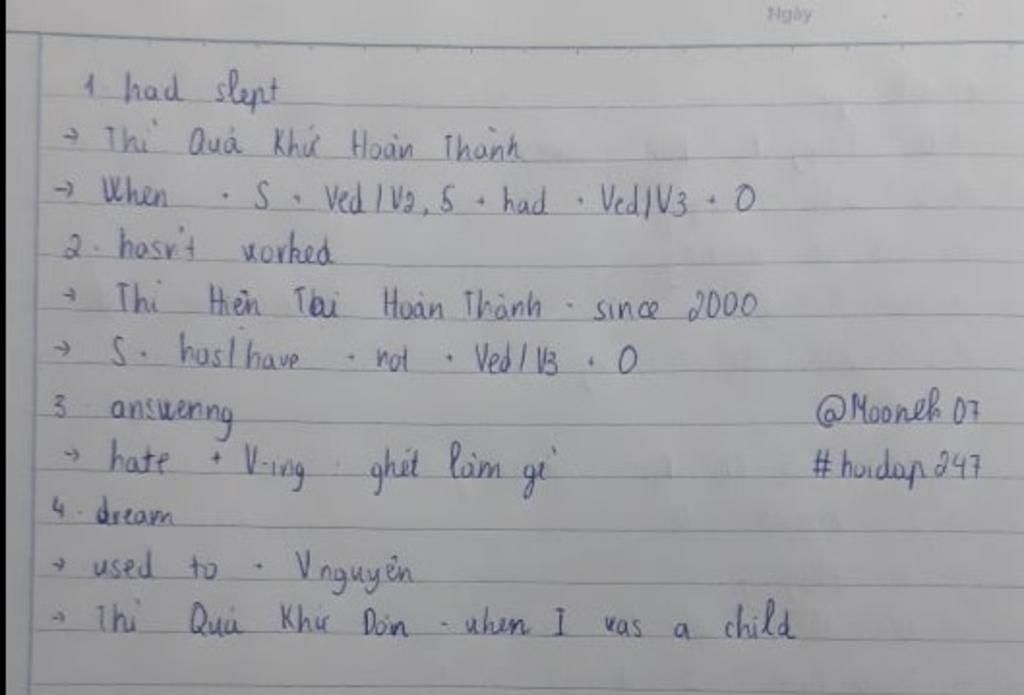 Ngày
1 had slept
→ Thì Quá Khứ Hoàn Thành
→ When + S + Ved/V2, S + had + Ved/V3 + O
2. hasn't worked
→ Thì Hiện Tại Hoàn Thành - since 2000
→ S + has/have + not + Ved/V3 + O
3 answering @Mooneh07
→ hate + V-ing : ghét làm gì #hoidap247
4. dream
→ used to + V nguyên
→ Thì Quá Khứ Đơn - when I was a child